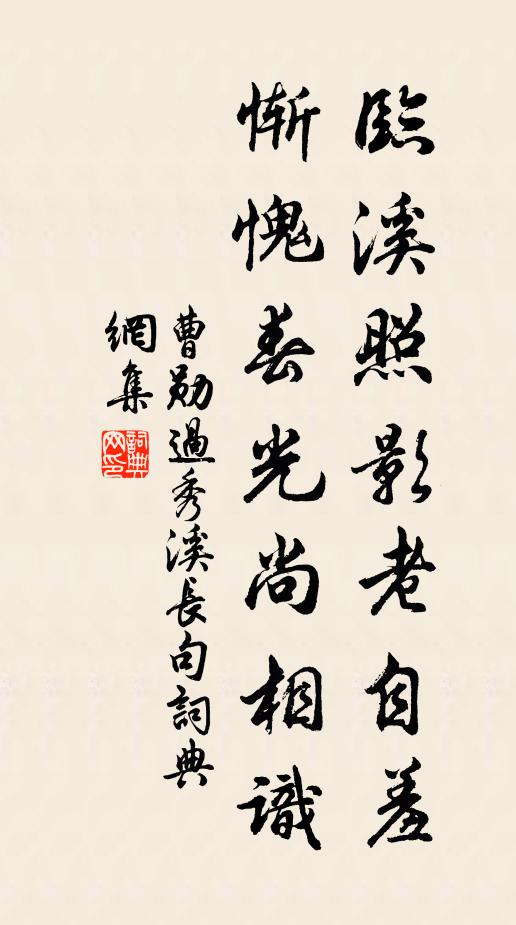 臨溪照影老自羞
慚愧春光尚相識
曹勛過秀溪長句詞典
網集
詞典
网印